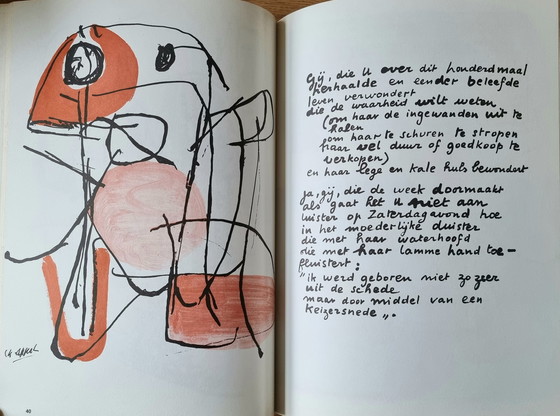 Gij, die U over dit honderdmaal
herhaalde en eender beleefde
leven verwondert
die de waarheid wilt weten
(om haar de ingewanden uit te
halen
om haar te schuren te stropen
haar vel duur of goedkoop te
verkopen)
en haar lege en kale huls bewondert
ja, gij, die de week doormaakt
als gaat het U niet aan
luister op Zaterdagavond hoe
in het moederlijke duister
die met haar waterhoofd
die met haar lamme hand toe-
fluistert:
"ik werd geboren niet zo zeer
uit de schede
maar door middel van een
keizersnede".
ck appel
40